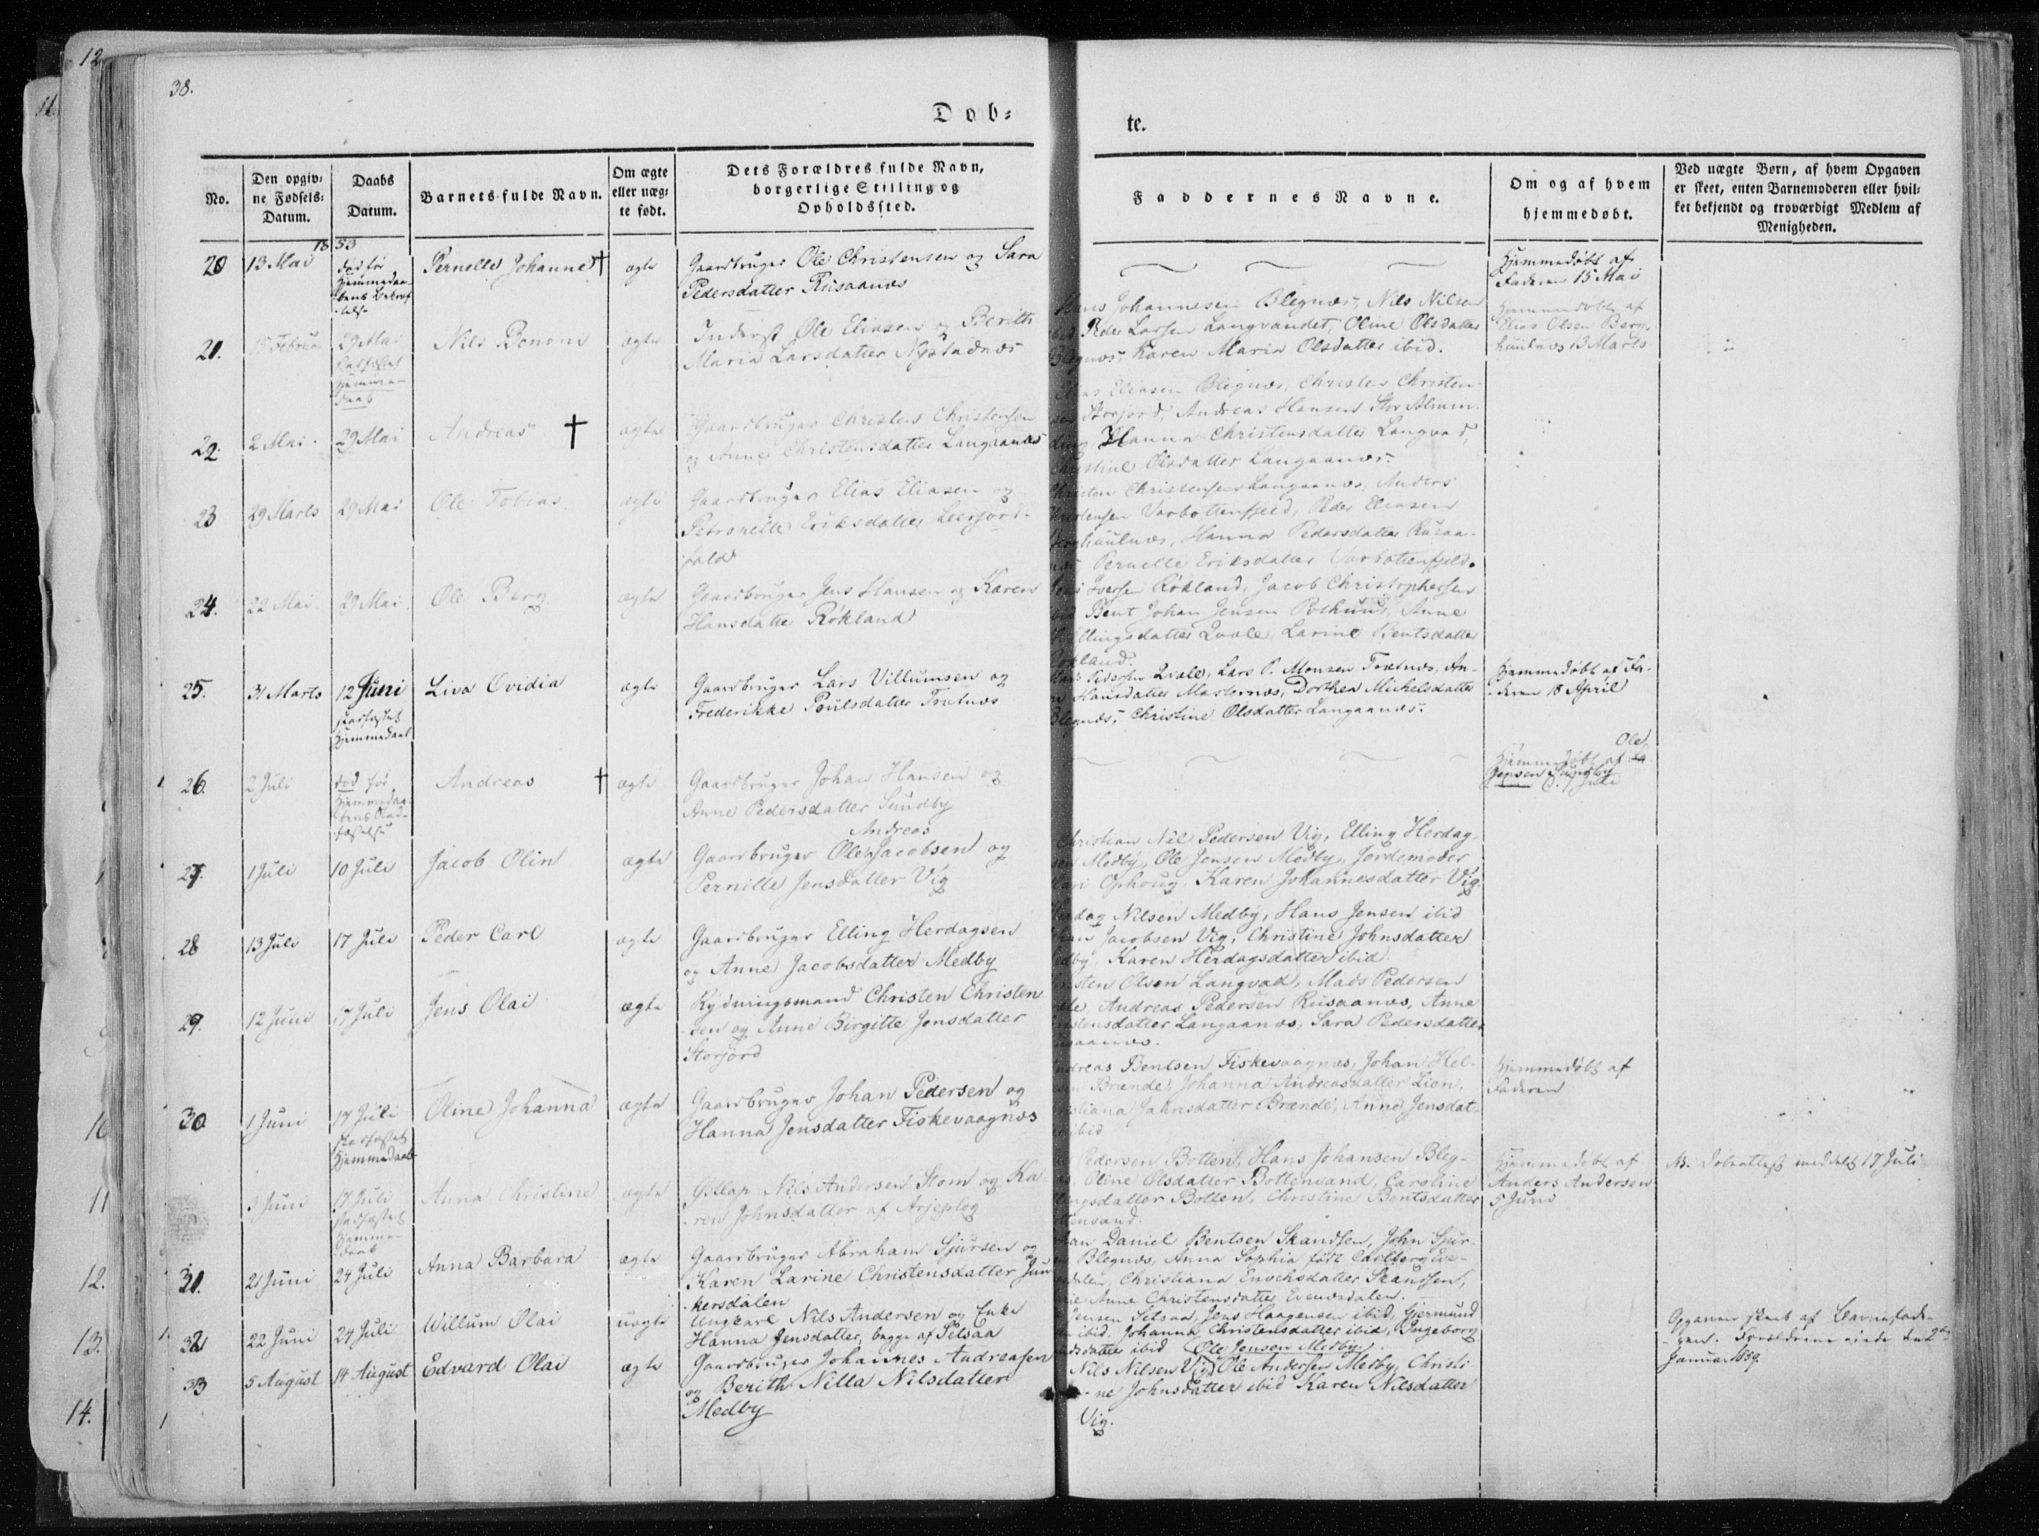 12
11.
38.
Dob-
te.
No.
Den opgiv-
ne Fødsels-
Datum.
Daabs
Datum.
Barnets fulde Navn.
Om ægte
eller uæg-
te født.
Dets Forældres fulde Navn,
borgerlige Stilling og
Opholdssted.
Faddernes Navne.
Om og af hvem
hjemmedøbt.
Ved uægte Børn, af hvem Opgaven
er skeet, enten Barnemoderen eller hvil-
ket bekjendt og troværdigt Medlem af
Menigheden.
1853
20 13 Mai
død før
Hjemmedaa-
bens
Pernelle Johanne †
ægte
Gaardbruger Ole Christensen og Sara
Pedersdatter Rusaanæs
Hjemmedøbt af
Faderen 15 Mai
21. Februar
29 Mai
stadfæstet
Hjemme-
daab
Nils Benoni
ægte
Inderst Ole Eliasen og Berith
Maria Larsdatter Nystadnæs
Hans Johannesen Blegnæs, Nils Nilsen
ibid Peder Larsen Langvandet, Oline Olsdatter
Blegnæs, Karen Maria Olsdatter ibid.
Hjemmedøbt af
Elias Olsen Berg-
huulnæs 13 Marts
22. 2 Mai
29 Mai
Andreas †
ægte
Gaardbruger Christen Christensen
og Anne Christensdatter Langaanæs
Eliasen Blegnæs, Christen Christen-
sen Storjord, Andreas Hansen
Hanna Christensdatter Langvad,
Christine Olsdatter Langaanæs.
23 29 Marts
29 Mai
Ole Tobias
ægte
Gaardbruger Elias Eliasen og
Petronelle Eriksdatter Leerjord-
fald
Christen Christensen Langaanæs, Anders
Christensen Varbottenfjeld, Peder Eliasen
Berghuulnæs, Hanna Pedersdatter Rusaa-
næs Pernelle Eriksdatter Varbottenfjeld.
24. 22 Mai
29 Mai
Ole Berg
ægte
Gaardbruger Jens Hansen og Karen
Hansdatter Røkland
Iversen Røkland, Jacob Christophersen
ibid Bent Johan Jensen Pothuus, Anne
Ellingsdatter Qvale, Larine Bentsdatter
Røkland.
25. 31 Marts
12 Juni
stadfæstet
Hjemmedaab
Liva Ovidia
ægte
Gaardbruger Lars Villumsen og
Frederikke Poulsdatter Toxtnæs
Pedersen Qvale, Lars P. Monsen Toxtnæs, An-
ne Hansdatter Masternæs, Dorthea Michelsdatter
Blegnæs, Christine Olsdatter Langaanæs.
Hjemmedøbt af Fa-
deren 18 April
26. 2 Juli
død før
Hjemmedaa-
bens Stad-
fæstelse
Andreas †
ægte
Gaardbruger Johan Hansen og
Anne Pedersdatter Sundby
Ole
Hjemmedøbt af
Jensen Sundby
d. 7 Juli
27. 1 Juli
10 Juli
Jacob Olin
ægte
Andreas
Gaardbruger Ole Jacobsen og
Pernille Jensdatter Vig
Christian Nil Pedersen Vig, Elling Herdag-
sen Medby, Ole Jensen Medby, Jordemoder
Ophoug, Karen Johannesdatter Vig.
28 13 Juli
17 Juli
Peder Carl
ægte
Gaardbruger Elling Herdagsen
og Anne Jacobsdatter Medby
Herdag Nilsen Medby, Hans Jensen ibid
Johan Jacobsen Vig, Christine Johnsdatter
Medby, Karen Herdagsdatter ibid.
29. 12 Juni
17 Juli
Jens Olai
ægte
Rydningsmand Christen Christen-
sen og Anne Birgitte Jensdatter
Storjord
Christen Olsen Langvad, Mads Pedersen
Andreas Pedersen Rusaanæs, Anne
Christensdatter Langaanæs, Sara Pedersdatter
Rusaanæs.
16
30. 1 Juni
17 Juli
stadfæstet
Hjemmedaab
Oline Johanna
ægte
Gaardbruger Johan Pedersen og
Hanna Jensdatter Fiskevaagnæs
Andreas Bentsen Fiskevaagnæs, Johan Hel-
Brænde, Johanna Andreasdatter Lien,
Christiana Jahnsdatter Brænde, Anne Jensdat-
ter ibid
Hjemmedøbt af
Faderen
11
3 Juni
17 Juli
stadfæstet
Hjemme-
daab
Anna Christine
ægte
Østlap Nils Andersen Stom og Ka-
ren Johnsdatter af Arjeplog
Pedersen Botten, Hans Johansen Bleg-
næs, Oline Olsdatter Bottenvand, Caroline
Botten, Christine Bentsdatter
Bottenvand.
Hjemmedøbt af
Anders Andersen
5 Juni
NB. Dobeattest meddelt 17 Juli
12.
31. 21 Juni
24 Juli
Anna Barbara
ægte
Gaardbruger Abraham Sjursen og
Karen Larine Christensdatter Jun-
kersdalen
Johan Daniel Bentsen Skandsen, John Sjur-
sen Blegnæs, Anna Sophia født Carlborg
Christiana Enochsdatter Skandsen,
Anne Christensdatter Evenæsdalen.
13.
32 22 Juni
24 Juli
Willum Olai
uægte
Ungkarl Nils Andersen og Enke
Hanna Jensdatter, begge af Setsaa
Jensen Setsaa, Jens Haagensen ibid, Gjermund
ibid. Johanna Christensdatter ibid, Ingeborg
datter ibid
Opgaven skeet af Barnefade-
ren. Forældrene viede den 2den
Januar 1859.
33 5 August
14 August
Edvard Olai
ægte
Gaardbruger Johannes Andreasen
og Berith Nilla Nilsdatter
Medby
Ole Jensen Medby,
Nils Nilsen Vig, Ole Andersen Medby, Christi-
ne Johnsdatter ibid Karen Nilsdatter
Vig.
14.